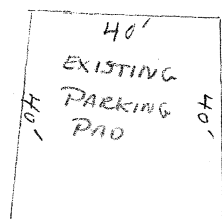 40'
EXISTING
PARKING
PAD
40'
40'